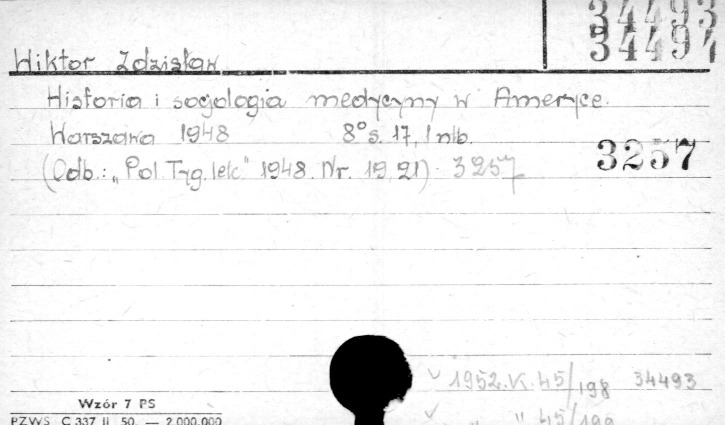 34493
34494
Wiktor Zdzisław
Historia i socjologia medycyny w Ameryce.
Warszawa 1948 8° s. 17, 1 nlb.
(Odb.: „Pol. Tyg. lek." 1948. Nr. 19, 21). 3257
3257
✓ 1952. K. 45/198 34493
✓ " " 45/199
Wzór 7 PS
PZWS C 337 II 50. — 2.000.000